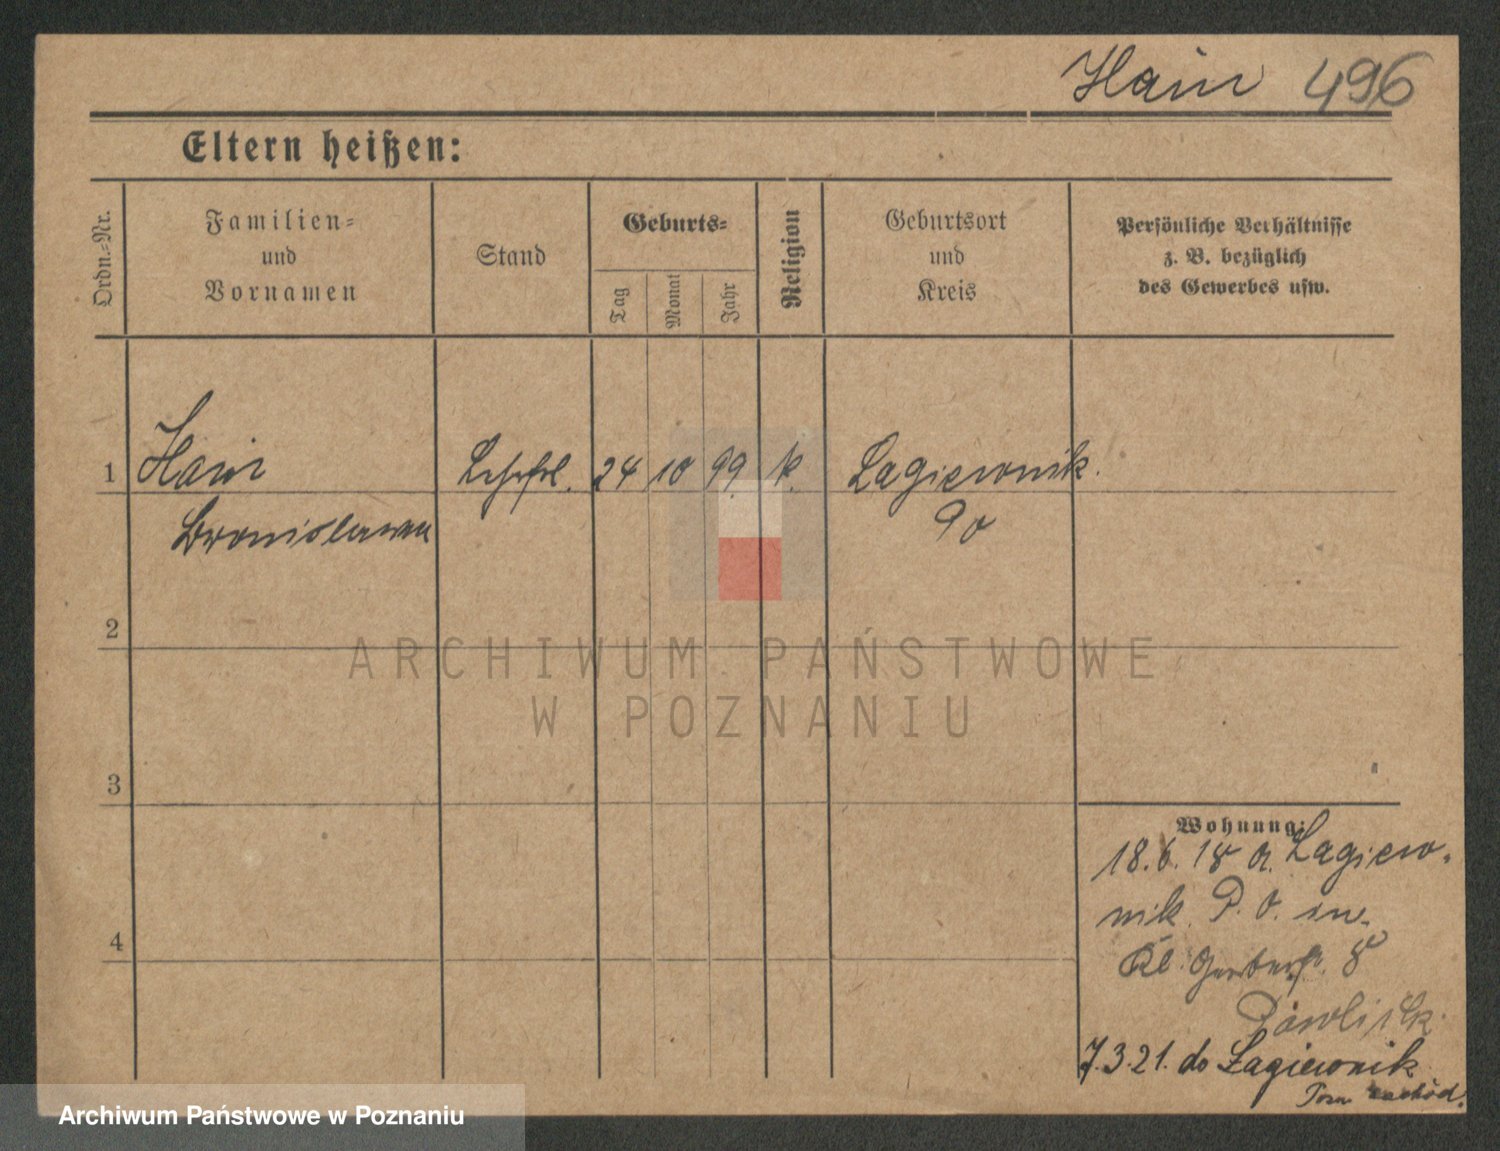 Hain 496
Eltern heißen:
Ordn.-Nr.
Familien-
und
Vornamen
Stand
Geburts-
Tag
Monat
Jahr
Religion
Geburtsort
und
Kreis
Persönliche Verhältnisse
z. B. bezüglich
des Gewerbes usw.
1
Hain
24 10 99. k. Lagiewnik.
Bronislawa
2
ARCHIWUM PAŃSTWOWE
W POZNANIU
3
Wohnung:
18.6.18 a. Lagiew-
nik. P. O.
Kl. Gerberstr. 8
4
7.3.21. do Łagiewnik
Pozn zachód.
Archiwum Państwowe w Poznaniu